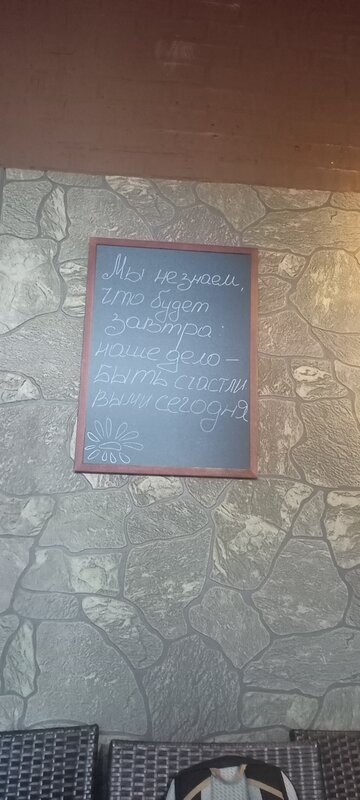 Мы не знаем,
что будет
завтра:
наше дело –
быть счастли
выми сегодня